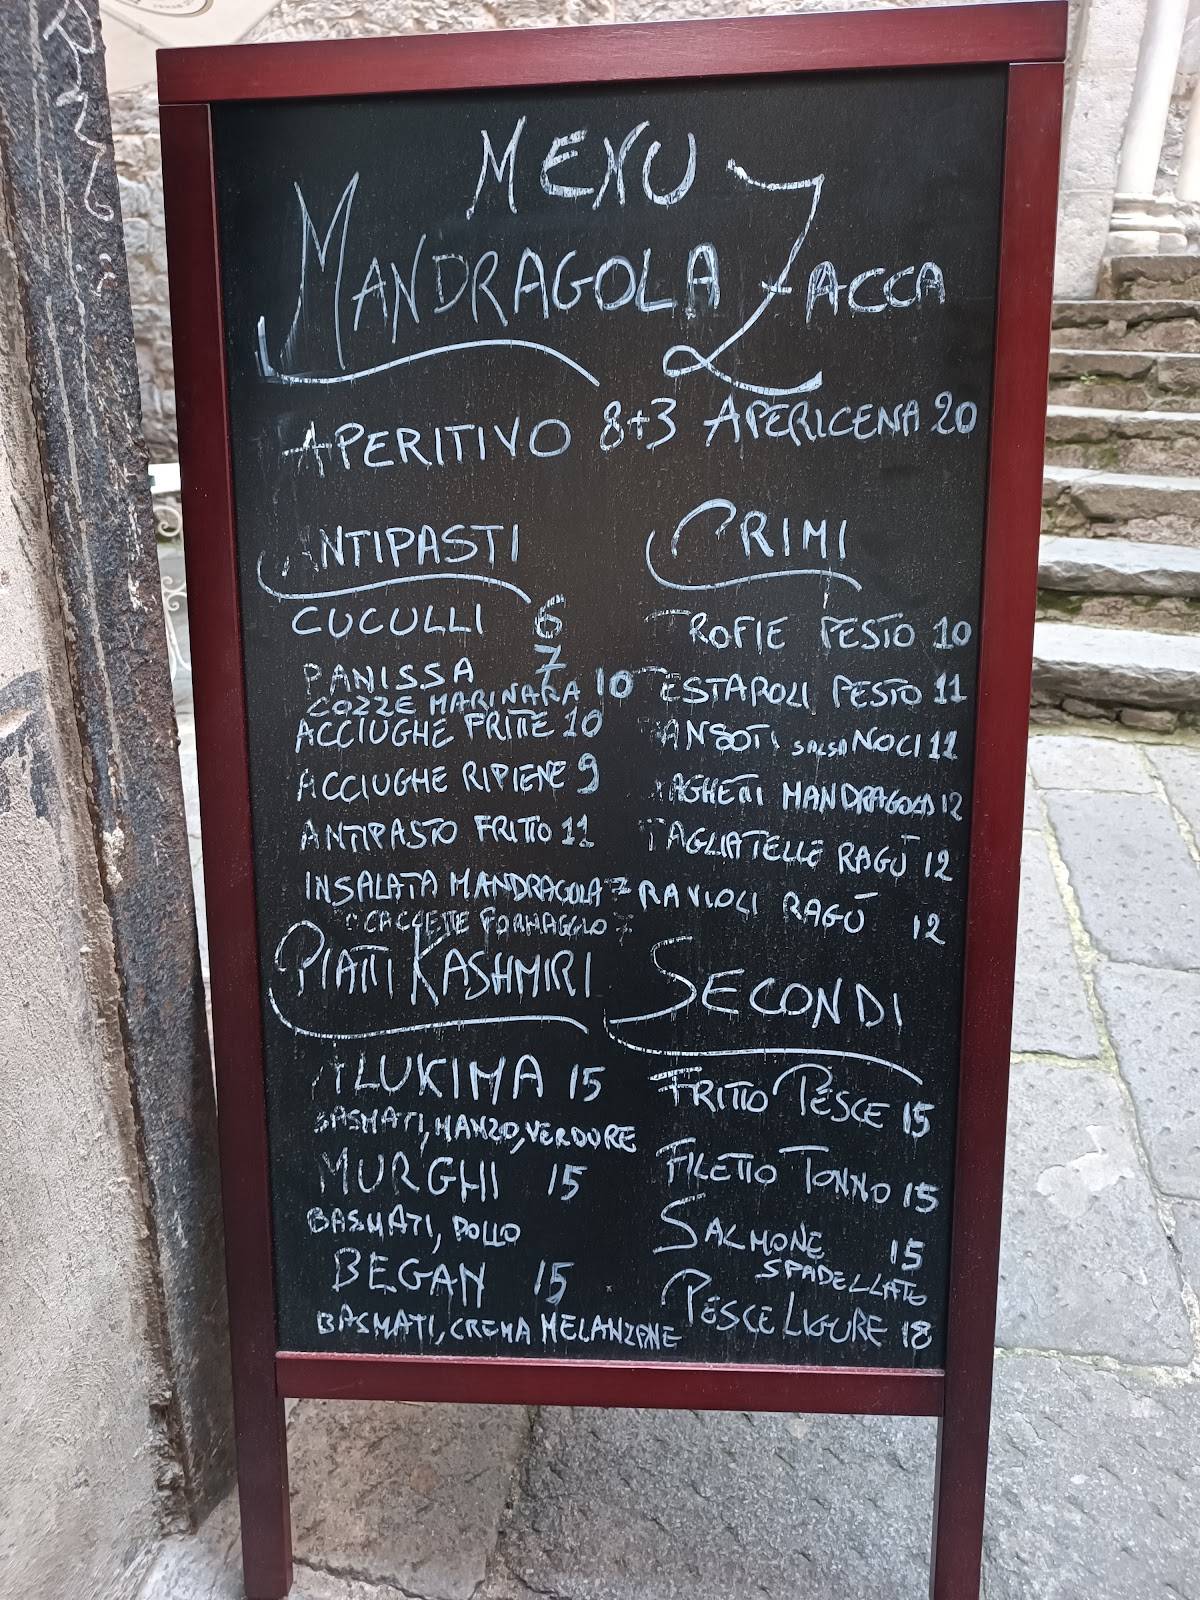 MENU
MANDRAGOLA ZACCA
APERITIVO 8+3 APERICENA 20
ANTIPASTI
CUCULLI 6
PANISSA 7
COZZE MARINARA 10
ACCIUGHE FRITTE 10
ACCIUGHE RIPIENE 9
ANTIPASTO FRITTO 11
INSALATA MANDRAGOLA 7
FOCACCETTE FORMAGGIO 7
PIATTI KASHMIRI
ALUKIMA 15
BASMATI, MANZO, VERDURE
MURGHI 15
BASMATI, POLLO
BEGAN 15
BASMATI, CREMA MELANZANE
PRIMI
TROFIE PESTO 10
TESTAROLI PESTO 11
PANSOTI SALSA NOCI 12
TAGHETTI MANDRAGOLA 12
TAGLIATELLE RAGÙ 12
RAVIOLI RAGÙ 12
SECONDI
FRITTO PESCE 15
FILETTO TONNO 15
SALMONE 15
SPADELLATO
PESCE LIGURE 18